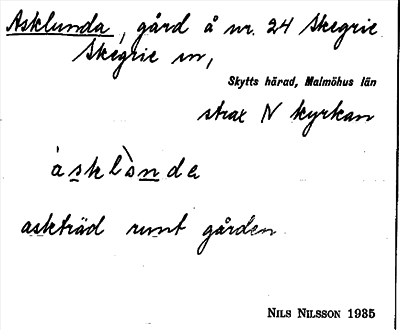 Asklunda, gård å nr. 24 Skegrie
Skegrie sn,
Skytts härad, Malmöhus län
strax N kyrkan
askträd runt gården
NILS NILSSON 1935